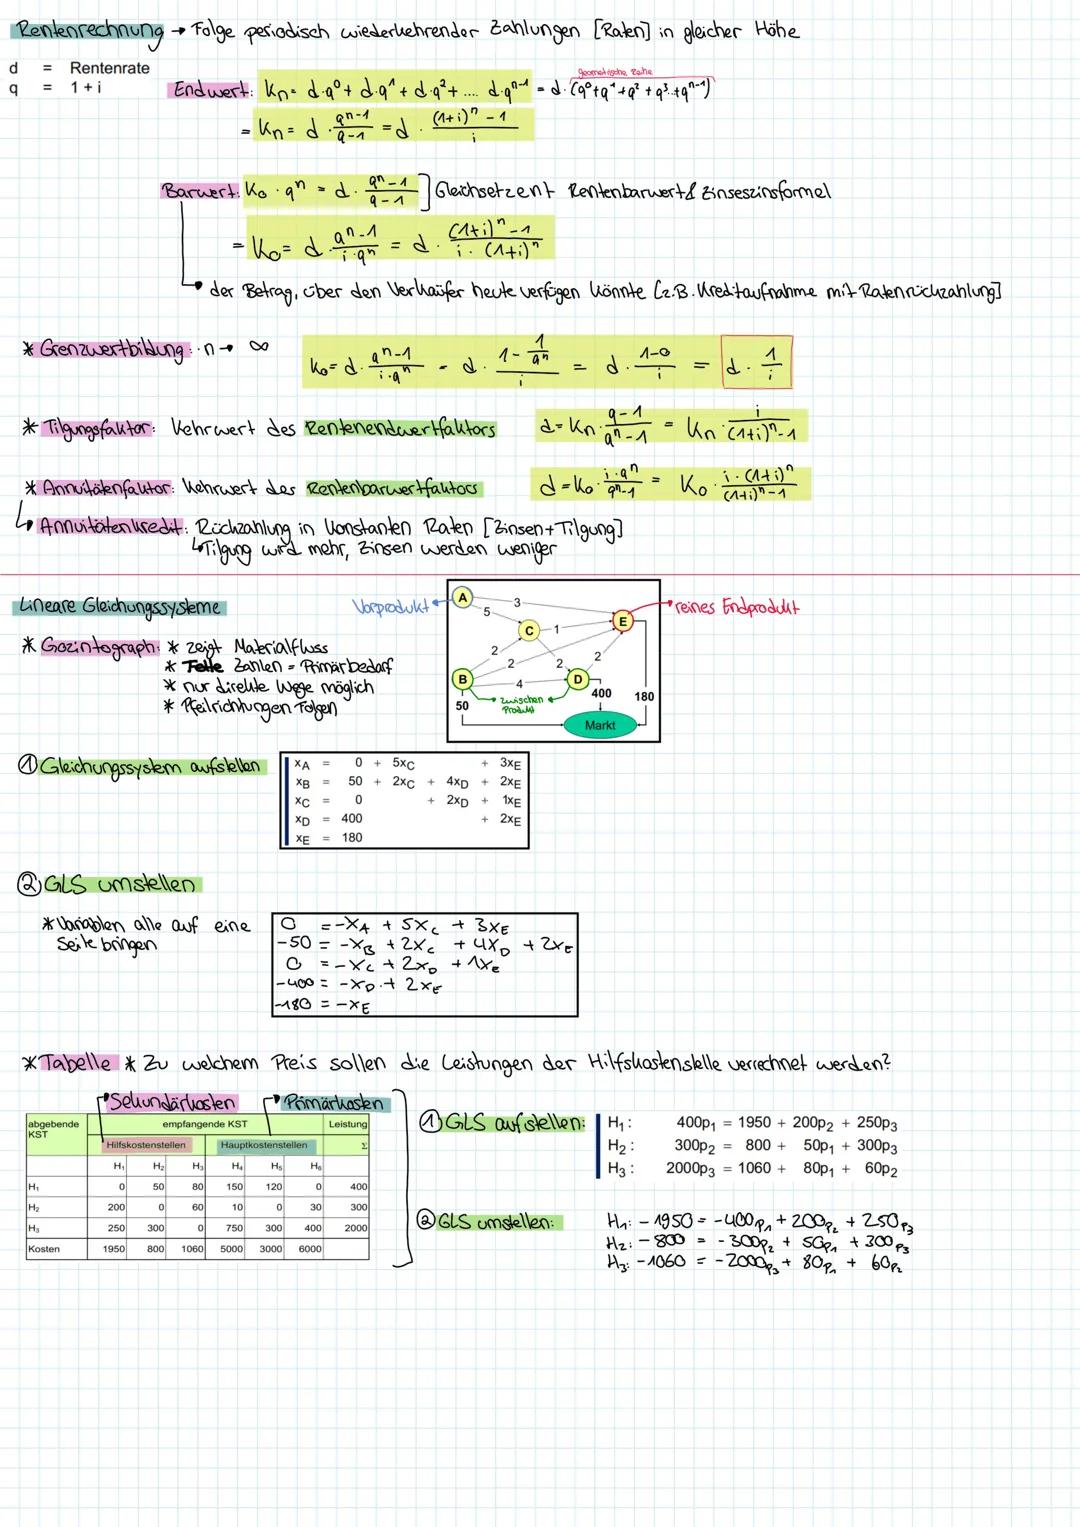 Rentenrechnung → Folge periodisch wiederkehrender Zahlungen [Raten] in gleicher Höhe
d = Rentenrate
q = 1 + i
geometrische Reihe
Endwert: Kn = d·q⁰ + d·q¹ + d·q² + .... d·qⁿ⁻¹ = d·(q⁰+q¹+q²+q³..+qⁿ⁻¹)
= Kn = d · (qⁿ-1)/(q-1) = d · ((1+i)ⁿ - 1)/i
Barwert: K₀ · qⁿ = d · (qⁿ-1)/(q-1) ] Gleichsetzen + Rentenbarwert & Zinseszinsformel
= K₀ = d · (qⁿ-1)/(i·qⁿ) = d · ((1+i)ⁿ-1)/(i·(1+i)ⁿ)
→ der Betrag, über den Verkäufer heute verfügen könnte [z.B. Kreditaufnahme mit Ratenrückzahlung]
* Grenzwertbildung: n → ∞ K₀ = d · (qⁿ-1)/(i·qⁿ) = d · (1 - 1/qⁿ)/i = d · (1-0)/i = d · 1/i
* Tilgungsfaktor: Kehrwert des Rentenendwertfaktors d = Kn · (q-1)/(qⁿ-1) = Kn · i/((1+i)ⁿ-1)
* Annuitätenfaktor: Kehrwert des Rentenbarwertfaktors d = K₀ · (i·qⁿ)/(qⁿ-1) = K₀ · (i·(1+i)ⁿ)/((1+i)ⁿ-1)
↳ Annuitätenkredit: Rückzahlung in konstanten Raten [Zinsen+Tilgung]
↳ Tilgung wird mehr, Zinsen werden weniger
Lineare Gleichungssysteme
* Gozintograph: * zeigt Materialfluss
* Fette Zahlen = Primärbedarf
* nur direkte Wege möglich
* Pfeilrichtungen folgen
Vorprodukt
A
3
5
E
reines Endprodukt
C
1
2
2
2
2
B
4
D
zwischen
Produkt
50
400
180
Markt
① Gleichungssystem aufstellen
xA = 0 + 5xC + 3xE
xB = 50 + 2xC + 4xD + 2xE
xC = 0 + 2xD + 1xE
xD = 400 + 2xE
xE = 180
② GLS umstellen
* Variablen alle auf eine
Seite bringen
0 = -xA + 5xC + 3xE
-50 = -xB + 2xC + 4xD + 2xE
0 = -xC + 2xD + 1xE
-400 = -xD + 2xE
-180 = -xE
* Tabelle * Zu welchem Preis sollen die Leistungen der Hilfskostenstelle verrechnet werden?
Sekundärkosten Primärkosten
abgebende KST empfangende KST Leistung
Hilfskostenstellen Hauptkostenstellen Σ
H₁ H₂ H₃ H₄ H₅ H₆
H₁ 0 50 80 150 120 0 400
H₂ 200 0 60 10 0 30 300
H₃ 250 300 0 750 300 400 2000
Kosten 1950 800 1060 5000 3000 6000
① GLS aufstellen:
H₁: 400p₁ = 1950 + 200p₂ + 250p₃
H₂: 300p₂ = 800 + 50p₁ + 300p₃
H₃: 2000p₃ = 1060 + 80p₁ + 60p₂
② GLS umstellen:
H₁: -1950 = -400p₁ + 200p₂ + 250p₃
H₂: -800 = -300p₂ + 50p₁ + 300p₃
H₃: -1060 = -2000p₃ + 80p₁ + 60p₂